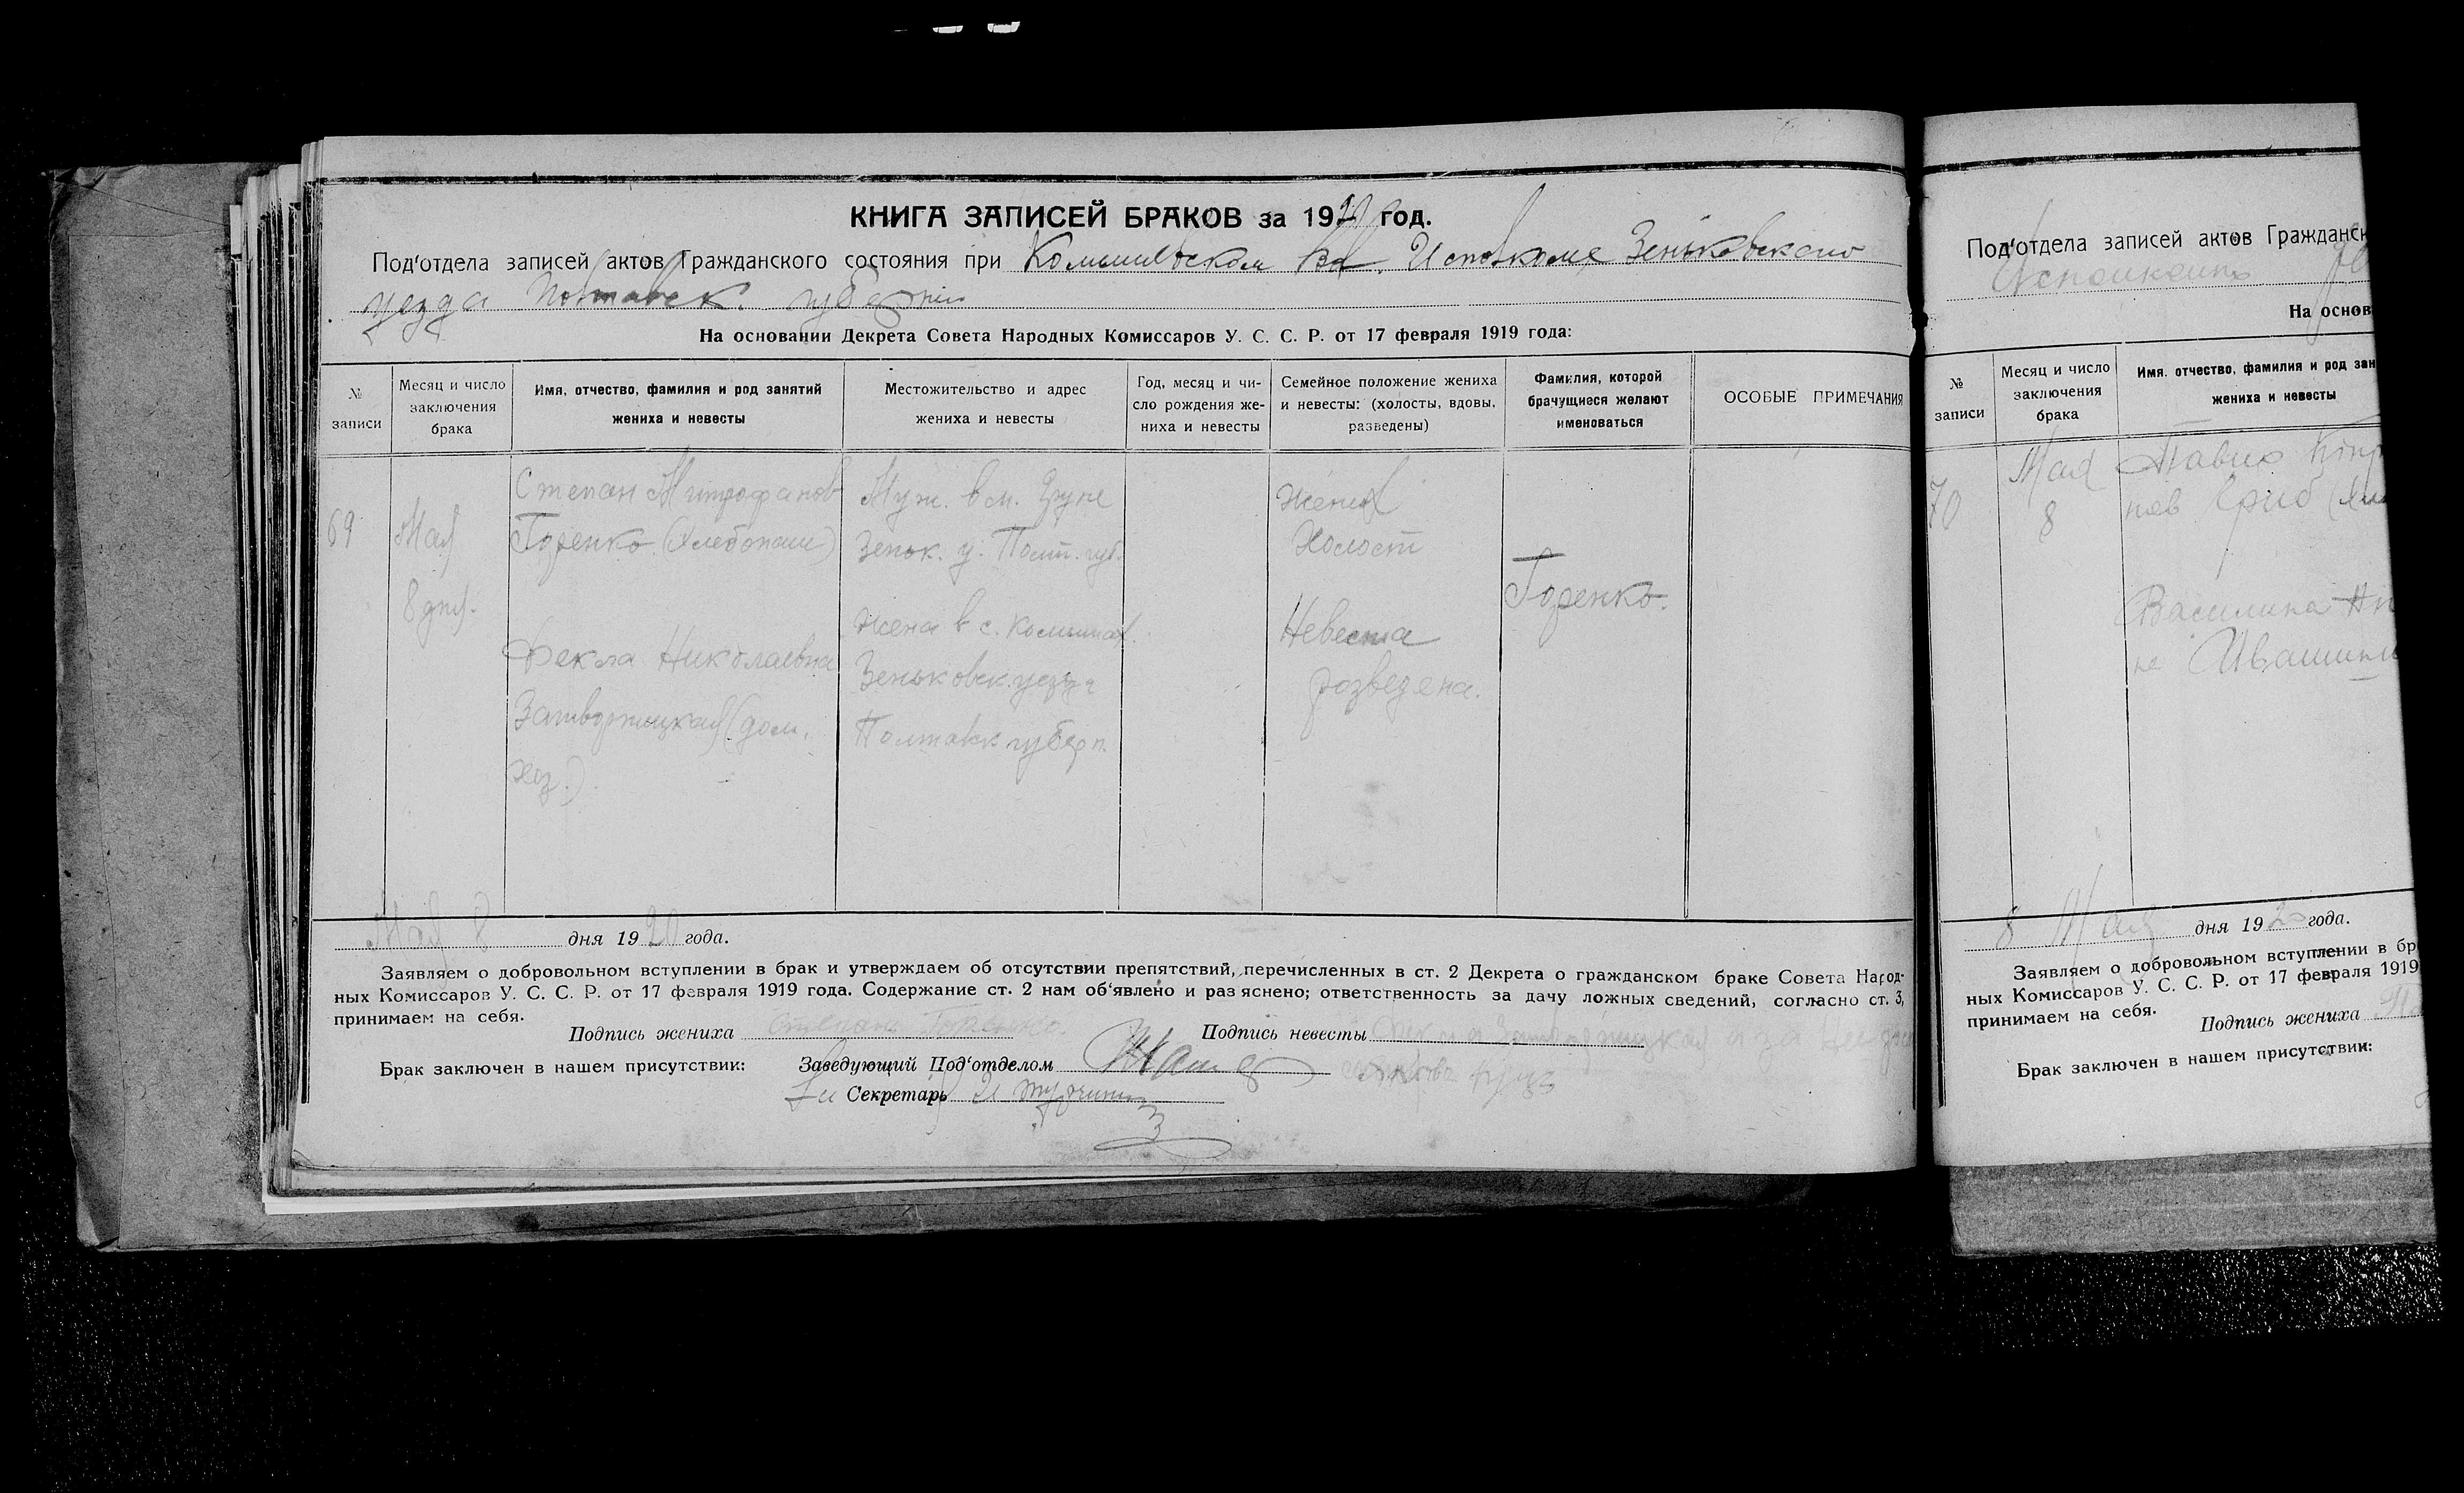 КНИГА ЗАПИСЕЙ БРАКОВ за 1920 год.
Под'отдела записей актов Гражданского состояния при Комышевском Вол. Исполкоме Зеньковского
уезда Полтавск. губернии
На основании Декрета Совета Народных Комиссаров У. С. С. Р. от 17 февраля 1919 года:
№ записи
Месяц и число заключения брака
Имя, отчество, фамилия и род занятий жениха и невесты
Местожительство и адрес жениха и невесты
Год, месяц и число рождения жениха и невесты
Семейное положение жениха и невесты: (холосты, вдовы, разведены)
Фамилия, которой брачущиеся желают именоваться
ОСОБЫЕ ПРИМЕЧАНИЯ
69
Мая
8 дня.
Степан Митрофанов
Горенко (Хлебопаш)
Фекла Николаевна
Затворницкая (дом.
хоз.)
Муж. в м. Груне
Зеньк. у. Полт. губ.
Жена в с. Комышах.
Зеньковск. уезда
Полтавск губерн.
Жених
Холост
Невеста
розведена.
Горенко.
Мая 8 дня 1920 года.
Заявляем о добровольном вступлении в брак и утверждаем об отсутствии препятствий, перечисленных в ст. 2 Декрета о гражданском браке Совета Народ-
ных Комиссаров У. С. С. Р. от 17 февраля 1919 года. Содержание ст. 2 нам об'явлено и раз'яснено; ответственность за дачу ложных сведений, согласно ст. 3,
принимаем на себя.
Подпись жениха Степан Горенко Подпись невесты Фекла Затворницкая а за
Брак заключен в нашем присутствии: Заведующий Под'отделом
Секретарь
Под'отдела записей актов Гражданск
На основ
№ записи
Месяц и число заключения брака
Имя, отчество, фамилия и род зан
жениха и невесты
70
Мая
8
Павло
нов Гриб
Василина
на
8 Мая дня 1920 года.
Заявляем о добровольном вступлении в бр
ных Комиссаров У. С. С. Р. от 17 февраля 1919
принимаем на себя.
Подпись жениха
Брак заключен в нашем присутствии: